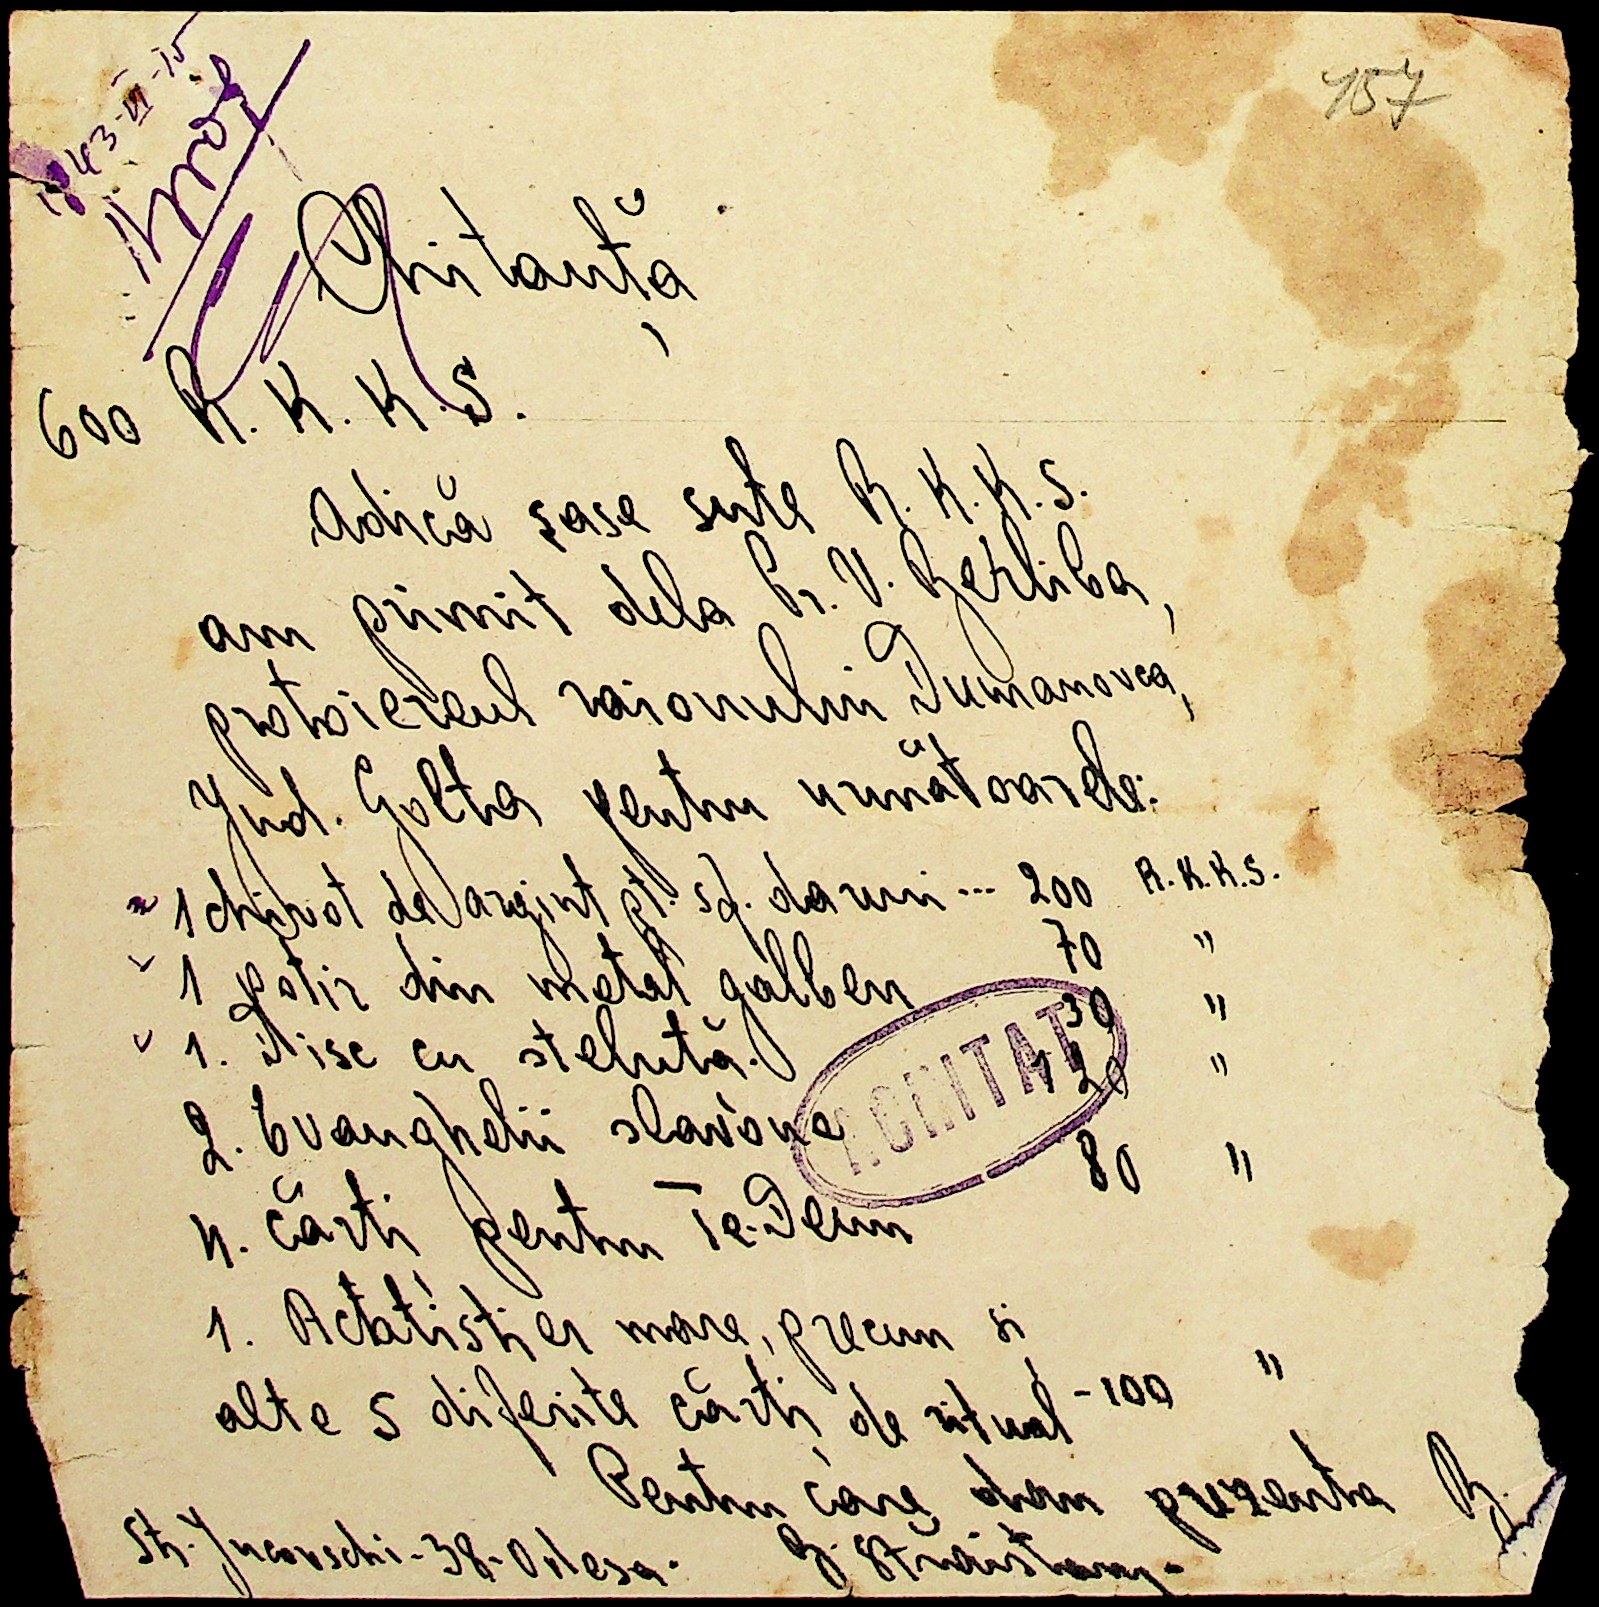 157
1943-VI-15
Chitanță
600 R.K.K.S.
Adică șase sute R.K.K.S.
am primit dela Pr. V. Berliba,
protoiereul raionului Dumanovca,
Jud. Golta pentru următoarele:
1 chivot de argint pt. sf. daruri --- 200 R.K.K.S.
1 potir din metal galben 70 "
1. Disc cu steluță. 30 "
2. Evanghelii slavone 120 "
ACHITAT
4. Cărți pentru Te-Deum 80 "
1. Actatistier mare, precum și
alte 5 diferite cărți de ritual - 100 "
Pentru care dăm prezenta
Str. Jucovschi - 38 - Odesa.